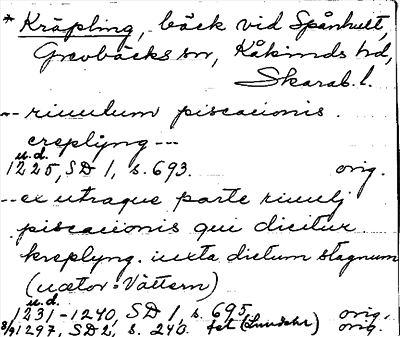 * Kräpling, bäck vid Spånhult,
Grevbäcks sn, Kåkinds hd,
Skarab. l.
-- riuulum piscacionis.
creplyng ---
u.d.
1225, SD 1, s. 693. orig.
-- ex utraque parte riuulj
piscacionis qui dicitur
kreplyng. iuxta dictum stagnum
(uætor = Vättern)
u.d.
1231-1240, SD 1, s. 695, orig.
8/9 1297, SD2, s. 240. fst orig.